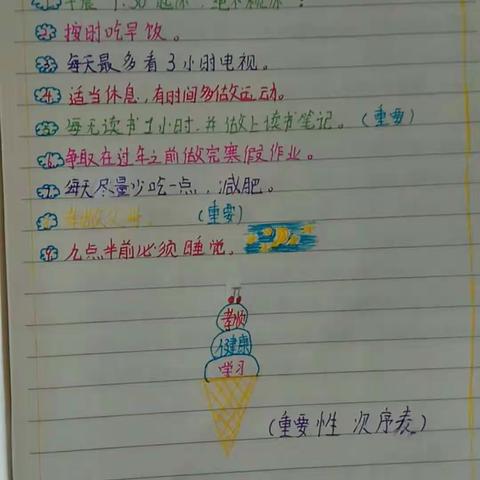 2. 按时吃早饭。
3. 每天最多看3小时电视。
4. 适当休息,有时间多做运动。
5. 每天读书1小时,并做上读书笔记。(重要)
6. 争取在过年之前做完寒假作业。
7. 每天尽量少吃一点,减肥。
8. (重要)
9. 九点半前必须睡觉。
孝顺
健康
学习
(重要性 次序表)